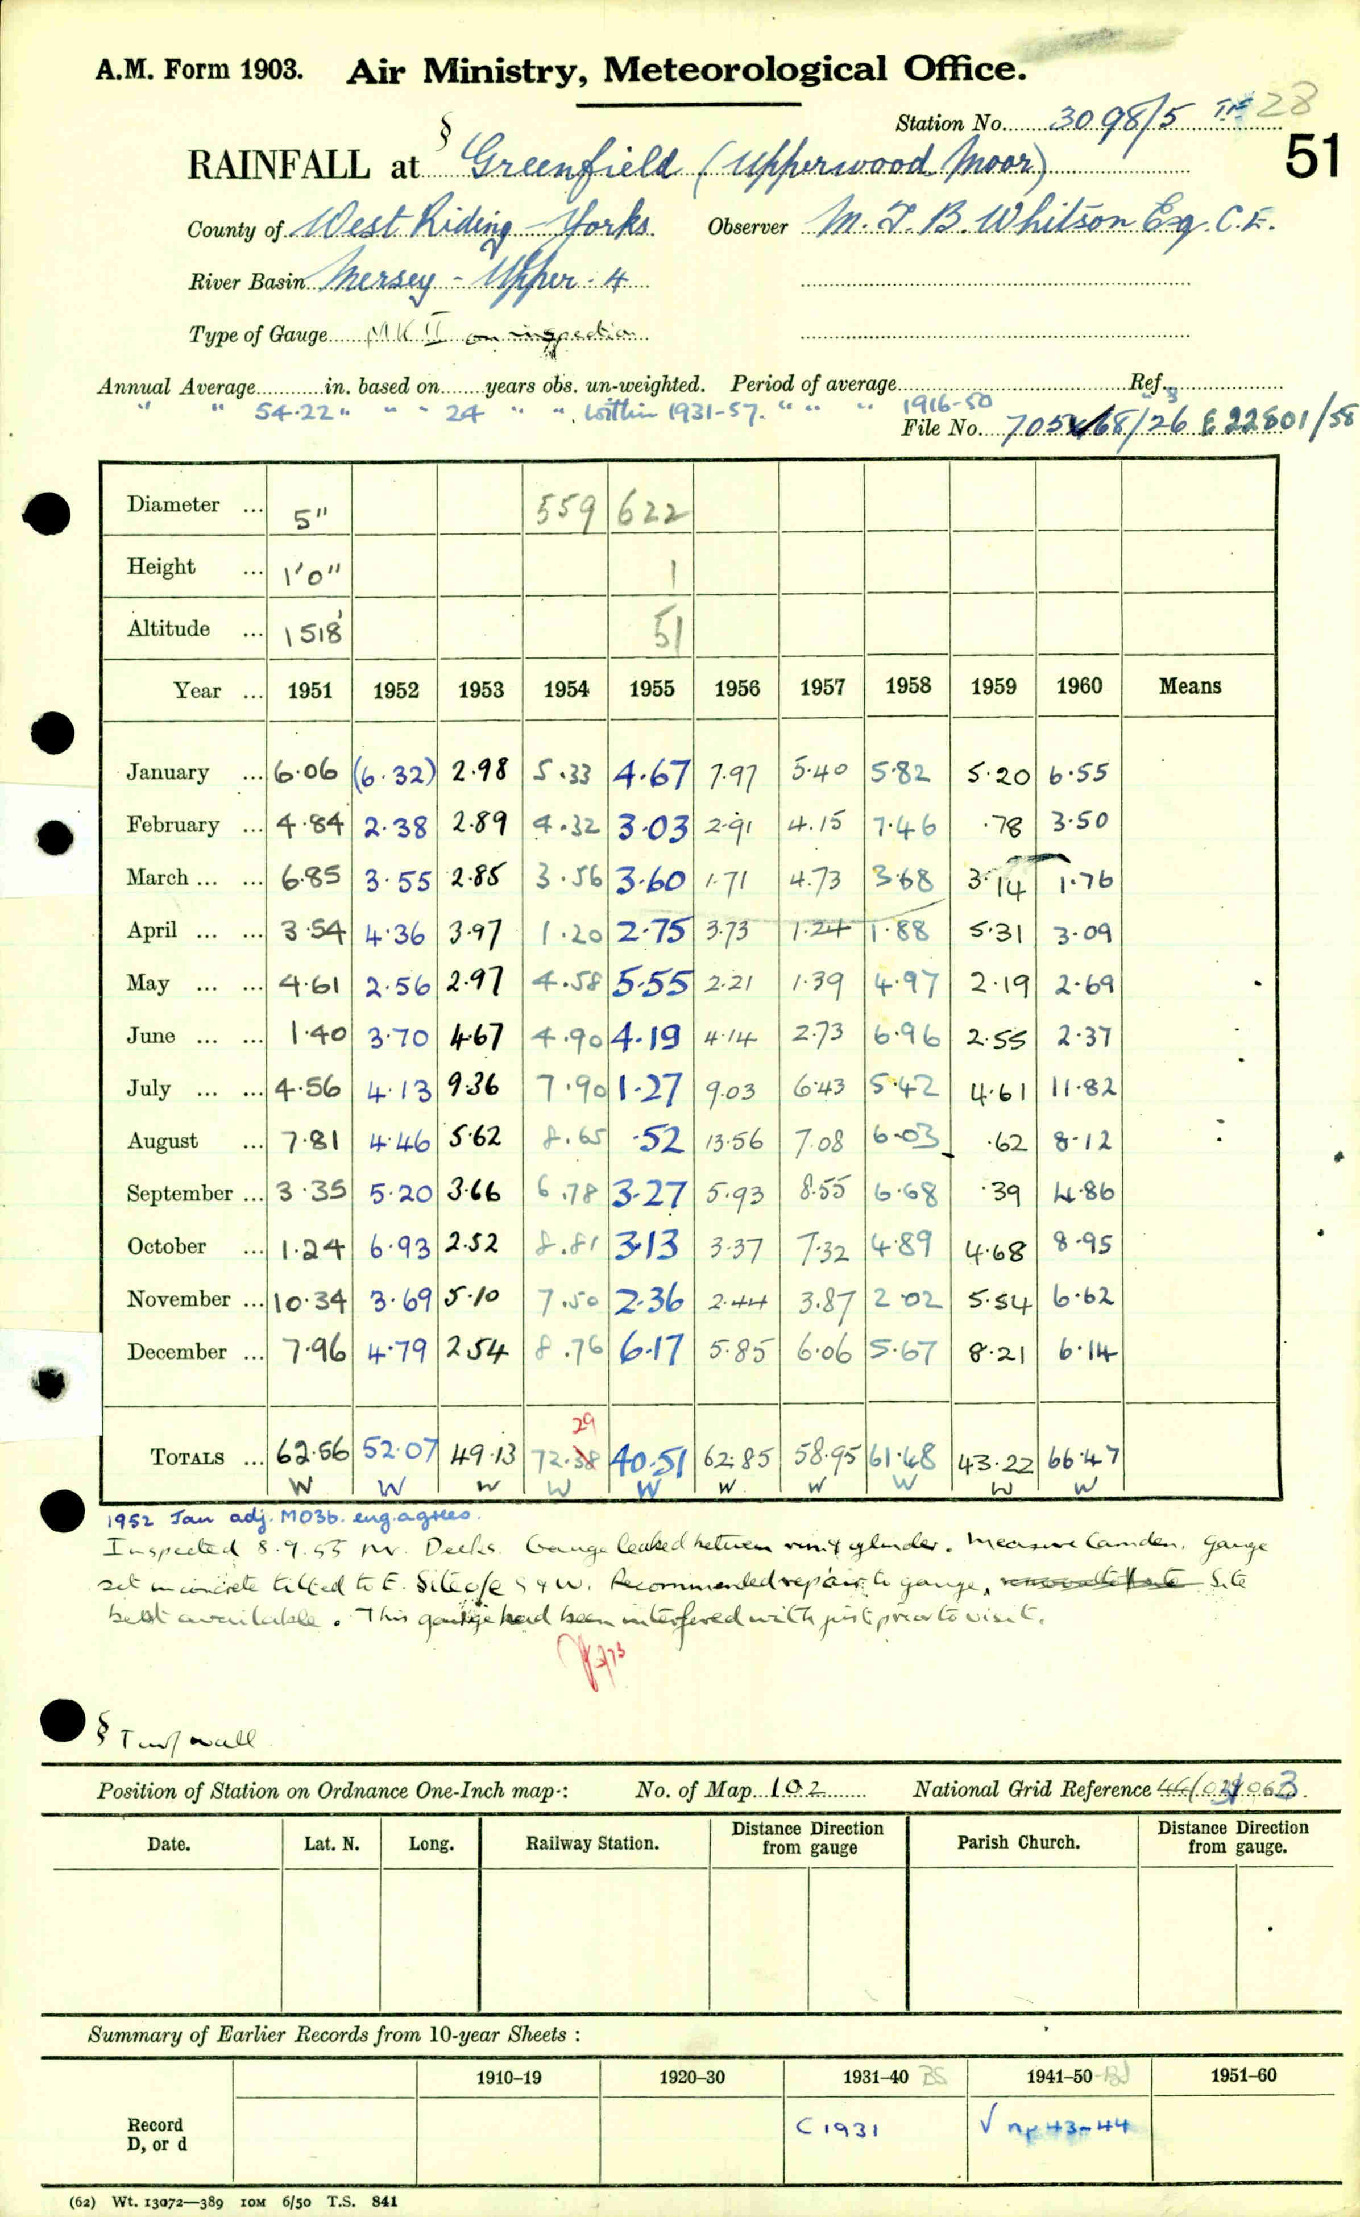 A.M. Form 1903. Air Ministry, Meteorological Office.
Station No. 3098/5 28
51
§
RAINFALL at Greenfield (Upperwood Moor)
County of West Riding - Yorks Observer M. T. B. Whitson Esq. C.E.
River Basin Mersey - Upper - 4
Type of Gauge MK II on inspection
Annual Average in. based on years obs. un-weighted. Period of average Ref.
" " 54.22 " " " 24 " " . within 1931-57. " " " 1916-50
File No. E22801/58
Diameter ... 5" 559 622
Height ... 1'0" 1
Altitude ... 1518' 51
Year ... 1951 1952 1953 1954 1955 1956 1957 1958 1959 1960 Means
January ... 6.06 (6.32) 2.98 5.33 4.67 7.97 5.40 5.82 5.20 6.55
February ... 4.84 2.38 2.89 4.32 3.03 2.91 4.15 7.46 .78 3.50
March ... ... 6.85 3.55 2.85 3.56 3.60 1.71 4.73 3.68 3.14 1.76
April ... ... 3.54 4.36 3.97 1.20 2.75 3.73 1.24 1.88 5.31 3.09
May ... ... 4.61 2.56 2.97 4.58 5.55 2.21 1.39 4.97 2.19 2.69
June ... ... 1.40 3.70 4.67 4.90 4.19 4.14 2.73 6.96 2.55 2.37
July ... ... 4.56 4.13 9.36 7.90 1.27 9.03 6.43 5.42 4.61 11.82
August ... 7.81 4.46 5.62 8.65 .52 13.56 7.08 6.03 .62 8.12
September ... 3.35 5.20 3.66 6.78 3.27 5.93 8.55 6.68 .39 4.86
October ... 1.24 6.93 2.52 8.81 3.13 3.37 7.32 4.89 4.68 8.95
November ... 10.34 3.69 5.10 7.50 2.36 2.44 3.87 2.02 5.54 6.62
December ... 7.96 4.79 2.54 8.76 6.17 5.85 6.06 5.67 8.21 6.14
29
TOTALS ... 62.56 52.07 49.13 72.38 40.51 62.85 58.95 61.48 43.22 66.47
W W W W W W W W W W
1952 Jan adj. MO3b. eng. agrees.
Inspected 8.9.55 Mr. Decks. Gauge leaked between rim & cylinder. Measure Camden. Gauge
set in concrete tilted to E. Site S & W. Recommended repair to gauge, Site
best available. This gauge had been interfered with just prior to visit.
§ Turf wall
Position of Station on Ordnance One-Inch map-: No. of Map 102 National Grid Reference
Date. Lat. N. Long. Railway Station. Distance Direction from gauge Parish Church. Distance Direction from gauge.
Summary of Earlier Records from 10-year Sheets :
1910-19 1920-30 1931-40 BS 1941-50 1951-60
Record
D, or d C 1931 √ np 43-44
(62) Wt. 13072—389 IOM 6/50 T.S. 841